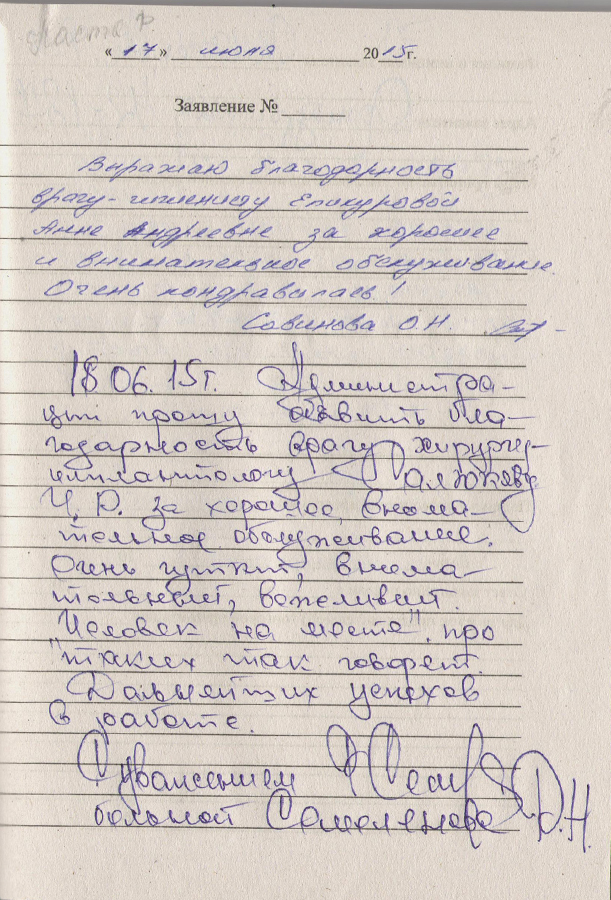 «17» июня 2015г.
Заявление №
Выражаю благодарность
врачу-гигиенисту Епикуровой
Анне Андреевне за хорошее
и внимательное обслуживание.
Очень пондравилась!
Савинова О.Н.
18 06. 15г. Администра-
ции прошу объявить бла-
годарность врачу хирургу-
имплантологу
Ч. Р. за хорошее, внима-
тельное обслуживание.
Очень чуткий, внима-
тельный, вежливый.
Человек на месте", про
"таких так говорят.
Дальнейших успехов
в работе.
С уважением
больной